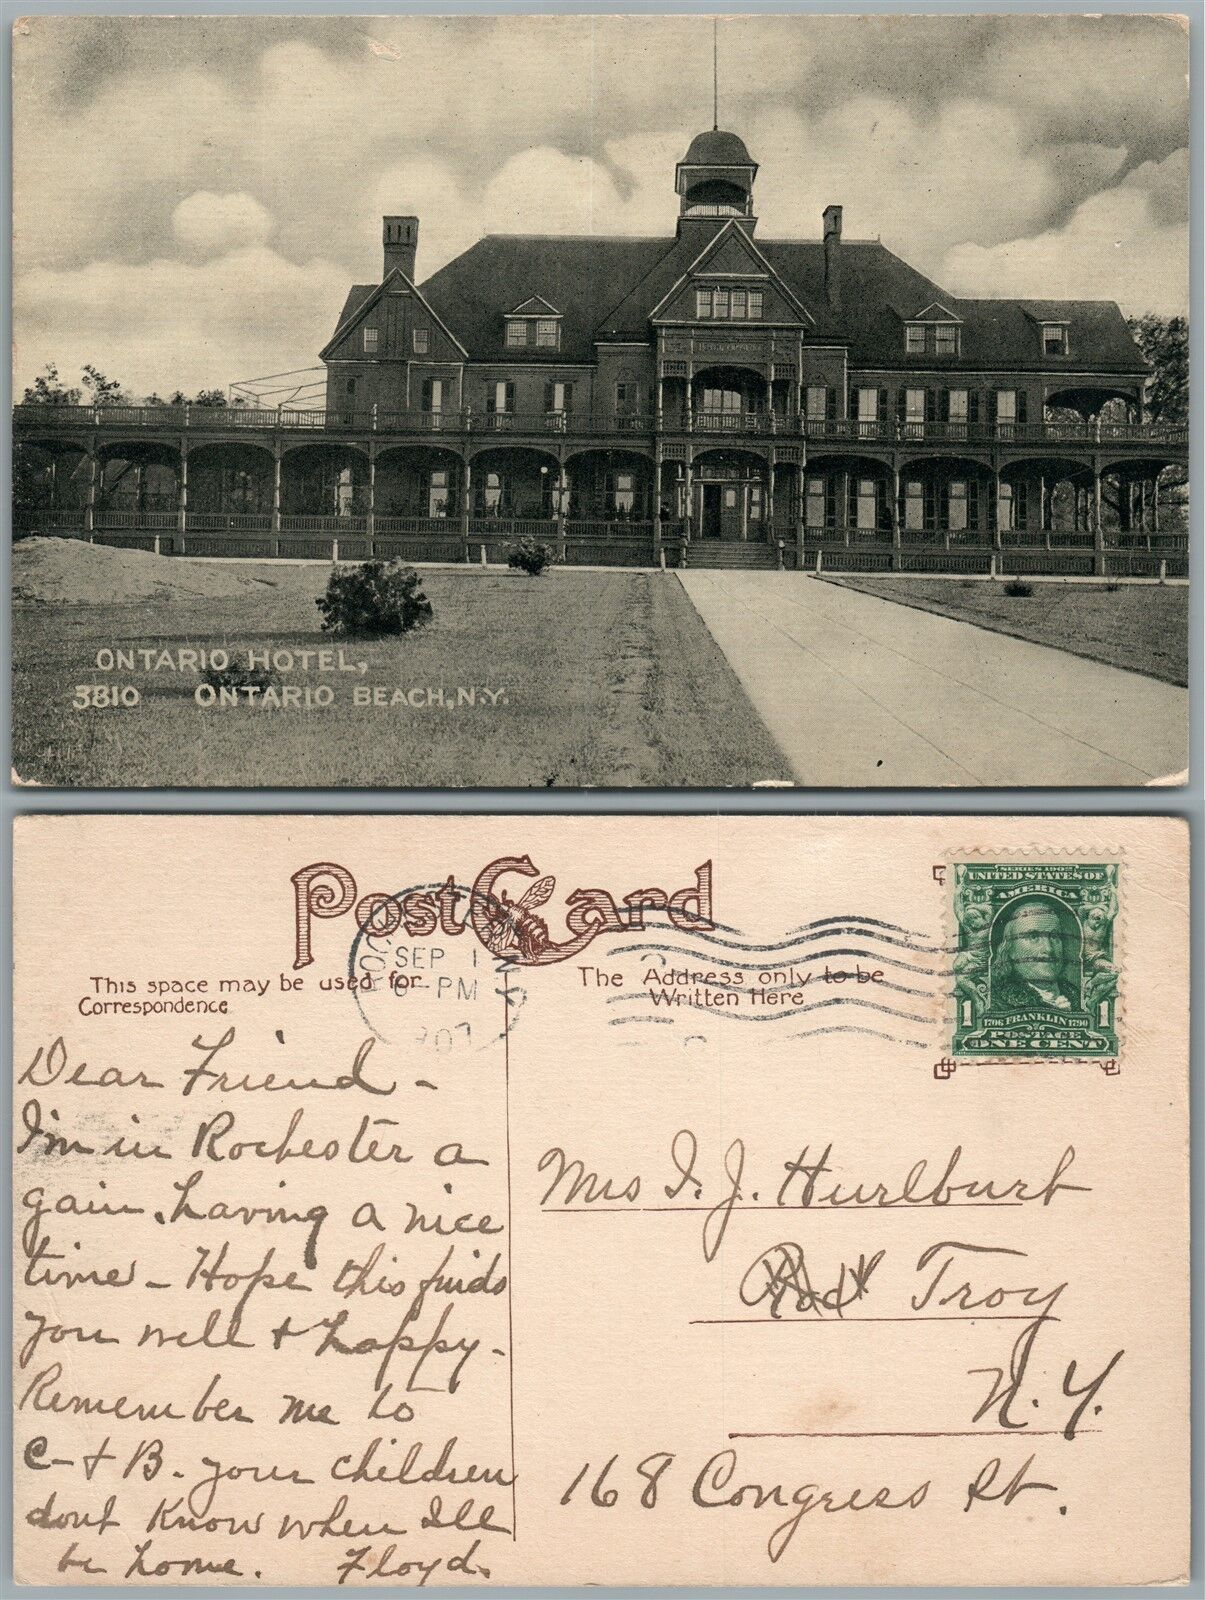 ONTARIO HOTEL,
3810 ONTARIO BEACH, N.Y.
Post Card
This space may be used for
Correspondence
The Address only to be
Written Here
SEP 1
6 - PM
1907
N.Y.
SERIES 1902
UNITED STATES OF
AMERICA
1 1706 FRANKLIN 1790 1
POSTAGE
ONE CENT
Dear Friend -
I'm in Rochester a
gain. having a nice
time - Hope this finds
you well & happy -
Remember me to
C - & B. your children
dont know when Ill
be home. Floyd.
Mrs I. J. Hurlburt
Troy
N. Y.
168 Congress St.